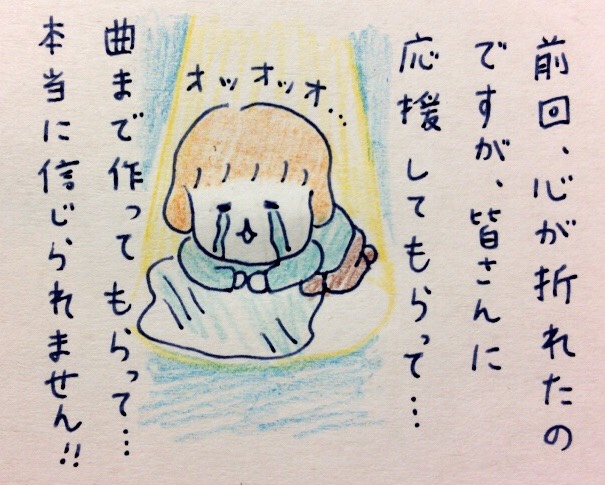 前回、心が折れたの
ですが、皆さんに
応援してもらって…
オッオッオ…
曲まで作ってもらって…
本当に信じられません!!